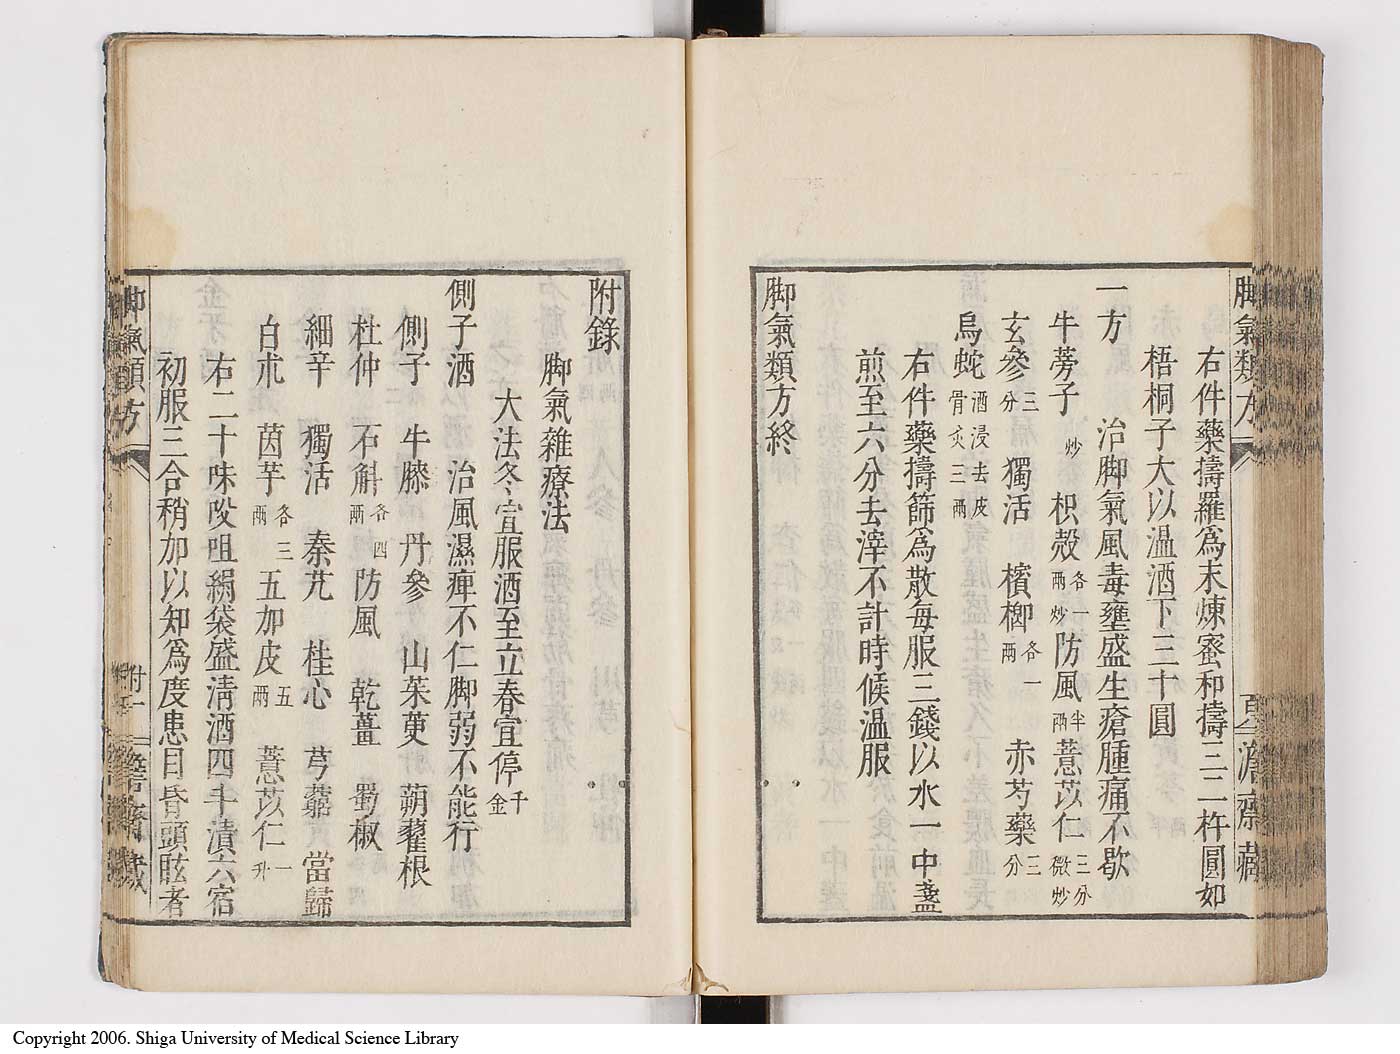 脚氣類方
百二
澹齋藏
右件藥擣羅爲末煉蜜和擣三二杵圓如
梧桐子大以温酒下三十圓
一方　治脚氣風毒壅盛生瘡腫痛不歇
牛蒡子炒　枳殼各一兩炒　防風半兩　薏苡仁三分微炒
玄參三分　獨活　檳榔各一兩　赤芍藥三分
烏蛇酒浸去皮骨炙三兩
右件藥擣篩爲散每服三錢以水一中盞
煎至六分去滓不計時候温服
脚氣類方終
附錄
脚氣雜療法
大法冬宜服酒至立春宜停千金
側子酒　治風濕痺不仁脚弱不能行
側子　牛膝　丹參　山茱萸　蒴藋根
杜仲　石斛各四兩　防風　乾薑　蜀椒
細辛　獨活　秦艽　桂心　芎藭　當歸
白朮　茵芋各三兩　五加皮五兩　薏苡仁一升
右二十味㕮咀絹袋盛淸酒四斗漬六宿
初服三合稍加以知爲度患目昏頭眩者
脚氣類方
附一